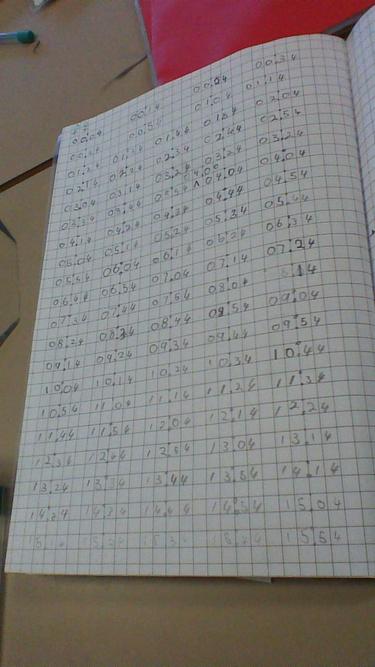 00:04 00:14 00:24 00:34
00:54 01:04 01:14
01:24 01:34 01:44 01:54 02:04
02:14 02:24 02:34 02:44 02:54
03:04 03:14 03:24 03:24 03:24
03:34 03:44 03:54 04:04 04:04
04:14 04:24 04:34 04:44 04:54
05:04 05:14 05:24 05:34 05:44
05:54 06:04 06:14 06:24 06:34
06:44 06:54 07:04 07:14 07:24
07:34 07:44 07:54 08:04 8:14
08:24 08:34 08:44 08:54 09:04
09:14 09:24 09:34 09:44 09:54
10:04 10:14 10:24 10:34 10:44
10:54 11:04 11:14 11:24 11:34
11:44 11:54 12:04 12:14 12:24
12:34 12:44 12:54 13:04 13:14
13:24 13:34 13:44 13:54 14:14
14:24 14:34 14:44 14:54 15:04
15:34 15:54